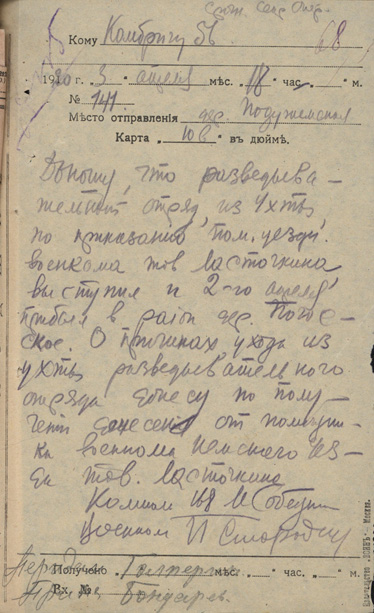 Сроч. Секр. Опер.
Кому Комбригу 56 68
1920 г. 3 апреля мѣс. 18 час. „ м.
№ 141
Мѣсто отправленія дер. Подужемская
Карта „10 в“ въ дюймѣ.
Доношу, что разведыва-
тельный отряд из Ухты
по приказанию пом. уезд.
военкома тов Ласточкина
выступил и 2-го апреля
прибыл в район дер. Пого-
ское. О причинах ухода из
Ухты разведывательного
отряда донесу по полу-
чении донесения от помощни-
ка военкома Кемского уез-
да тов. Ласточкина
Военком
Получено мѣс. „ час. „ м.
Вх. № Бондарев.